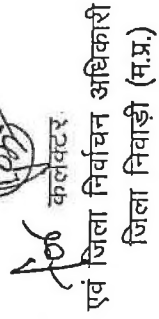 कलेक्टर
एवं जिला निर्वाचन अधिकारी
जिला निवाड़ी (म.प्र.)